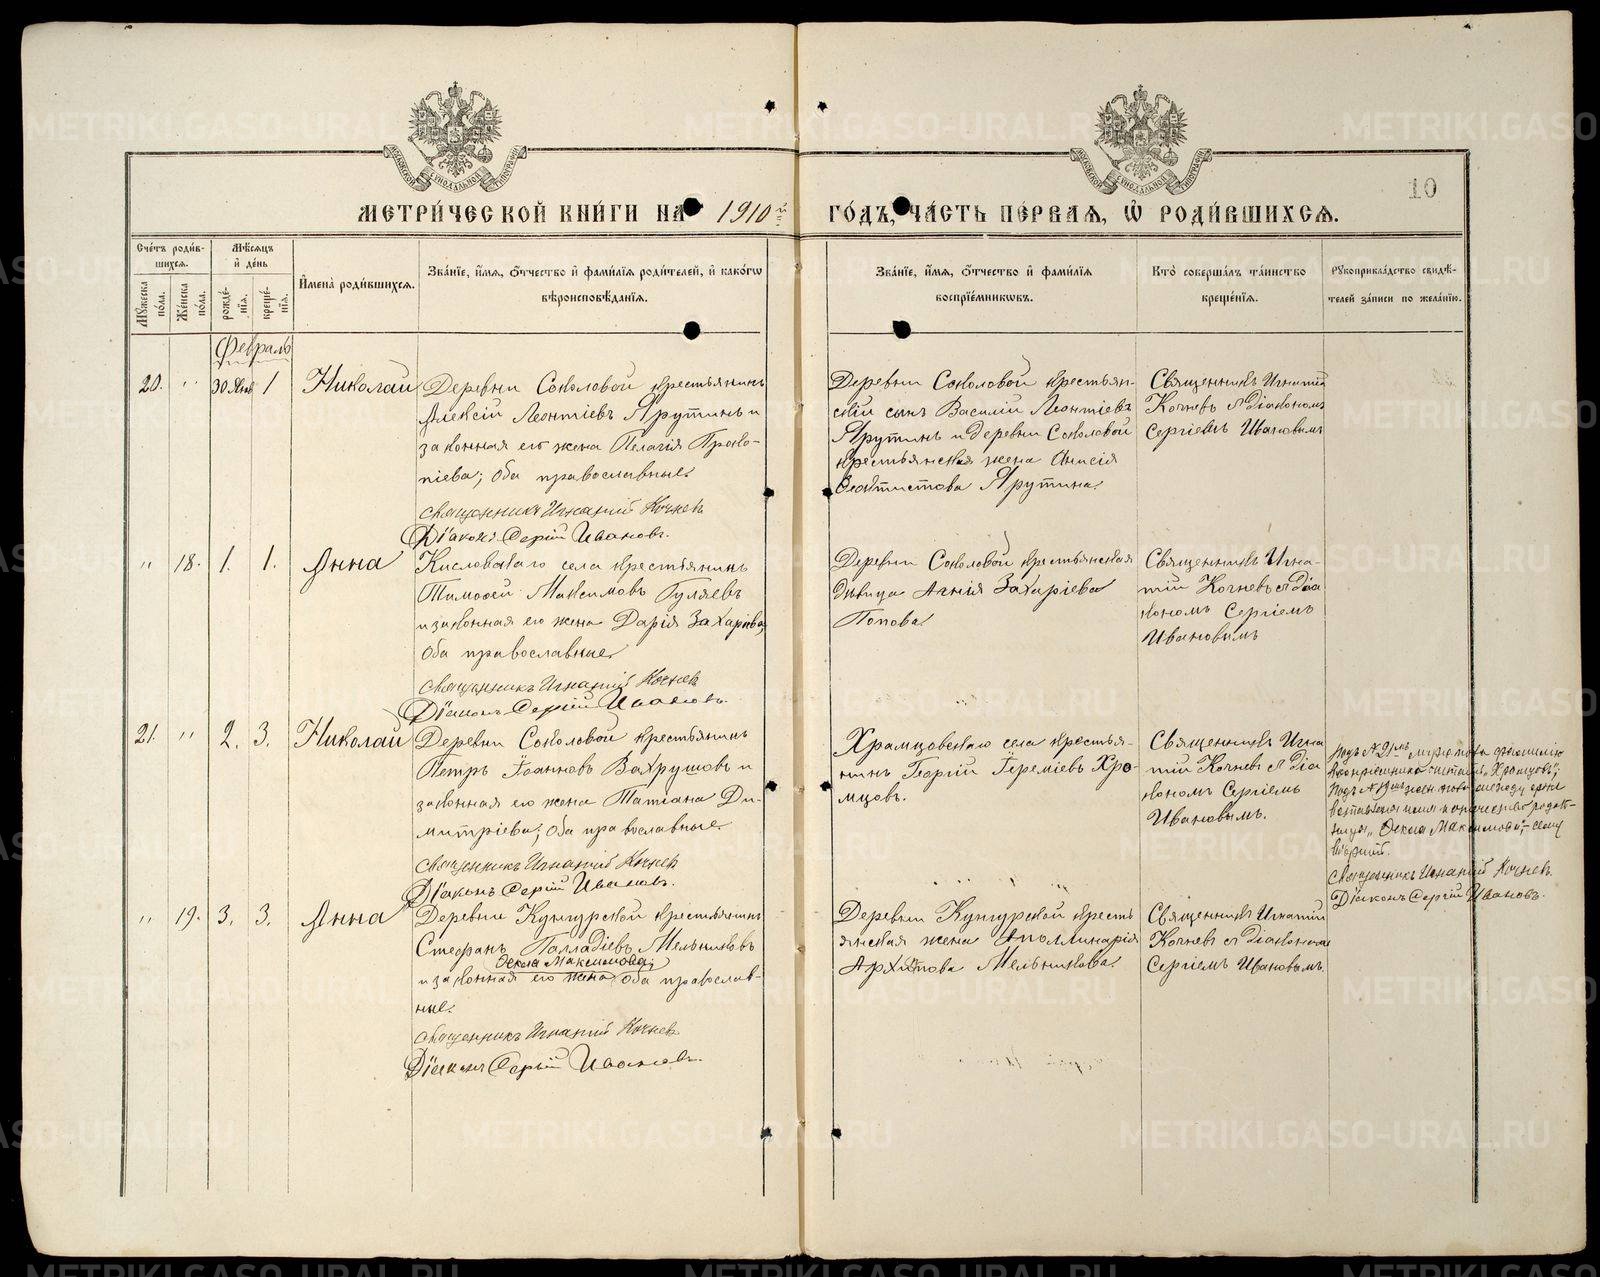 10
МЕТРИ́ЧЕСКОЙ КНИ́ГИ НА 1910й ГО́ДЪ, ЧА́СТЬ ПЕ́РВАЯ, Ѽ РОДИ́ВШИХСЯ.
Сче́тъ роди́вшихся.
Му́жеска по́ла.
Же́нска по́ла.
Мѣ́сяцъ и́ де́нь
рожде́нїя.
креще́нїя.
И҆мена̀ роди́вшихся.
Зва́нїе, и҆́мя, ѻ҆́тчество и҆ фами́лїя роди́телей, и҆ како́гѡ
вѣроисповѣ́данїя.
Зва́нїе, и҆́мя, ѻ҆́тчество и҆ фами́лїя
воспрїе́мниковъ.
Кто̀ соверша́лъ та́инство
креще́нїя.
Рꙋкоприкла́дство свидѣ́-
телей за́писи по жела́нїю.
Февраль
20. " 30 Янв 1 Николай
Деревни Соколовой крестьянинъ
Алексій Леонтіевъ Ярутинъ и
законная его жена Пелагія Проко-
піева; оба православные.
Священникъ Игнатій Кочневъ
Діаконъ Сергій Ивановъ.
Деревни Соколовой крестьян-
скій сынъ Василій Леонтіевъ
Ярутинъ и деревни Соколовой
крестьянская жена Анисія
Ярутина.
Священникъ Игнатій
Кочневъ с діакономъ
Сергіемъ Ивановымъ
" 18. 1. 1. Анна
Кисловскаго села крестьянинъ
Тимоѳей Максимовъ Гуляевъ
и законная его жена Дарія Захаріева;
оба православные.
Священникъ Игнатій Кочневъ
Діаконъ Сергій Ивановъ.
Деревни Соколовой крестьянская
дѣвица Агнія Захаріева
Попова.
Священникъ Игна-
тій Кочневъ с діа-
кономъ Сергіемъ
Ивановымъ
21. " 2. 3. Николай
Деревни Соколовой крестьянинъ
Петръ Іоанновъ Вахрушовъ и
законная его жена Татіана Ди-
митріева; оба православные.
Священникъ Игнатій Кочневъ
Діаконъ Сергій Ивановъ.
Храмцовскаго села крестья-
нинъ Георгій Іереміевъ Хра-
мцовъ.
Священникъ Игна-
тій Кочневъ с діа-
кономъ Сергіемъ
Ивановымъ.
Подъ № 21мъ фамилію
воспріемника считать „Храмцовъ";
Подъ № 19мъ
имя и отчество родит-
„Ѳекла Максимова",
вѣрить.
Священникъ Игнатій Кочневъ.
Діаконъ Сергій Ивановъ.
" 19. 3. 3. Анна
Деревни Кунгурской крестьянинъ
Стефанъ Палладіевъ Мельниковъ
Ѳекла Максимова;
и законная его жена оба православ-
ные.
Священникъ Игнатій Кочневъ
Діаконъ Сергій Ивановъ.
Деревни Кунгурской кресть-
янская жена Аполлинарія
Архипова Мельникова.
Священникъ Игнатій
Кочневъ с діакономъ
Сергіемъ Ивановымъ.
METRIKI.GASO-URAL.RU